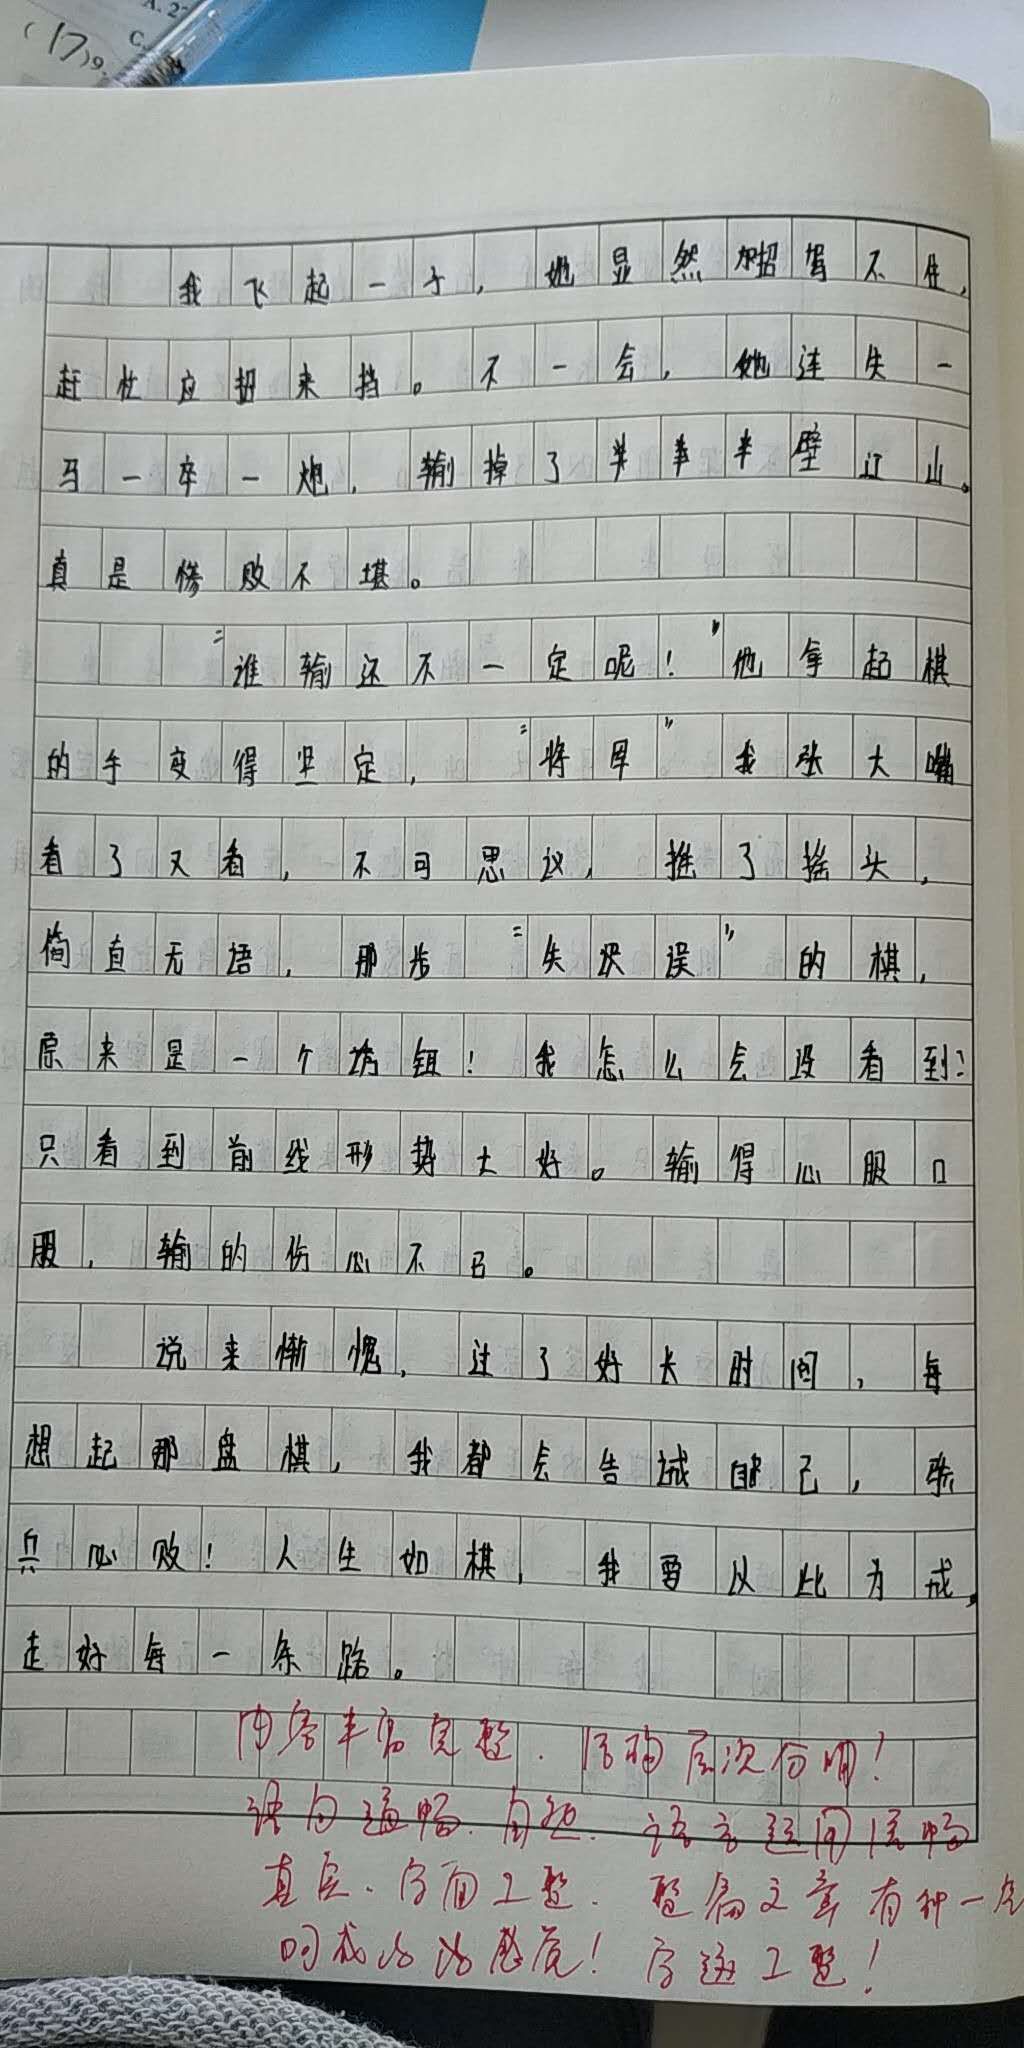 A. 2
C.
(17)9.
我飞起一子，她显然招驾不住，
赶忙应招来挡。不一会，她连失一
马一卒一炮，输掉了半壁江山。
真是惨败不堪。
“谁输还不一定呢！”他拿起棋
的手变得坚定，“将军”。我张大嘴
看了又看，不可思议，摇了摇头，
简直无语，那步“失误”的棋，
原来是一个坊钽！我怎么会没看到：
只看到前线形势大好。输得心服口
服，输的伤心不已。
说来惭愧，过了好长时间，每
想起那盘棋，我都会告诫自己，骄
兵必败！人生如棋，我要以此为戒，
走好每一条路。
内容丰富完整、结构层次分明！
语句通畅、自然、语言运用流畅
真实、字面工整、整篇文章有种一气
呵成的感觉！字迹工整！